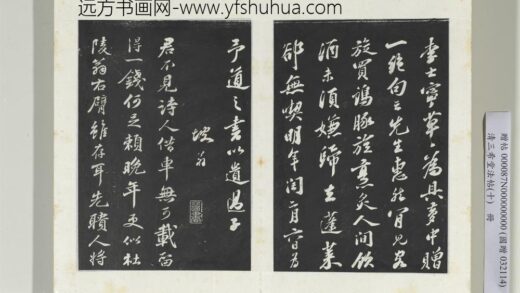 远方书画网- www.yfshuhua.com
李士寧草草為具夢中贈
一絕句云先生惠然肯見客
旋買鷄豚旋烹炙人間飲
酒未須嫌歸去蓬萊
卻無喫明年閏二月六日為
予道之書以遺過子
坡翁
君不見詩人借車無可載留
得一錢何足賴晚年更似杜
陵翁右臂雖存耳先聵人將
贈帖 000087N000000000 (國贈 032114)
清三希堂法帖(十) 冊